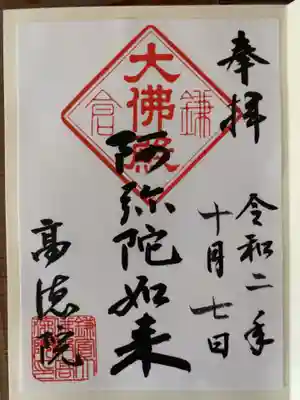 奉拝
令和二年
十月七日
鎌倉
大佛殿
阿弥陀如来
高徳院